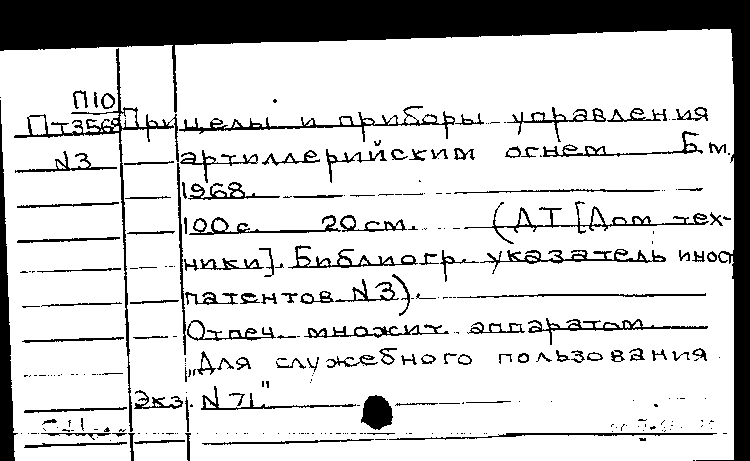 П10
Пт3568 Прицелы и приборы управления
N3 артиллерийским огнем. Б.м.,
1968.
100 с. 20 см. (ДТ [Дом тех-
ники]. Библиогр. указатель иност
патентов N3).
Отпеч. множит. аппаратом.
„Для служебного пользования
Экз. N 71."